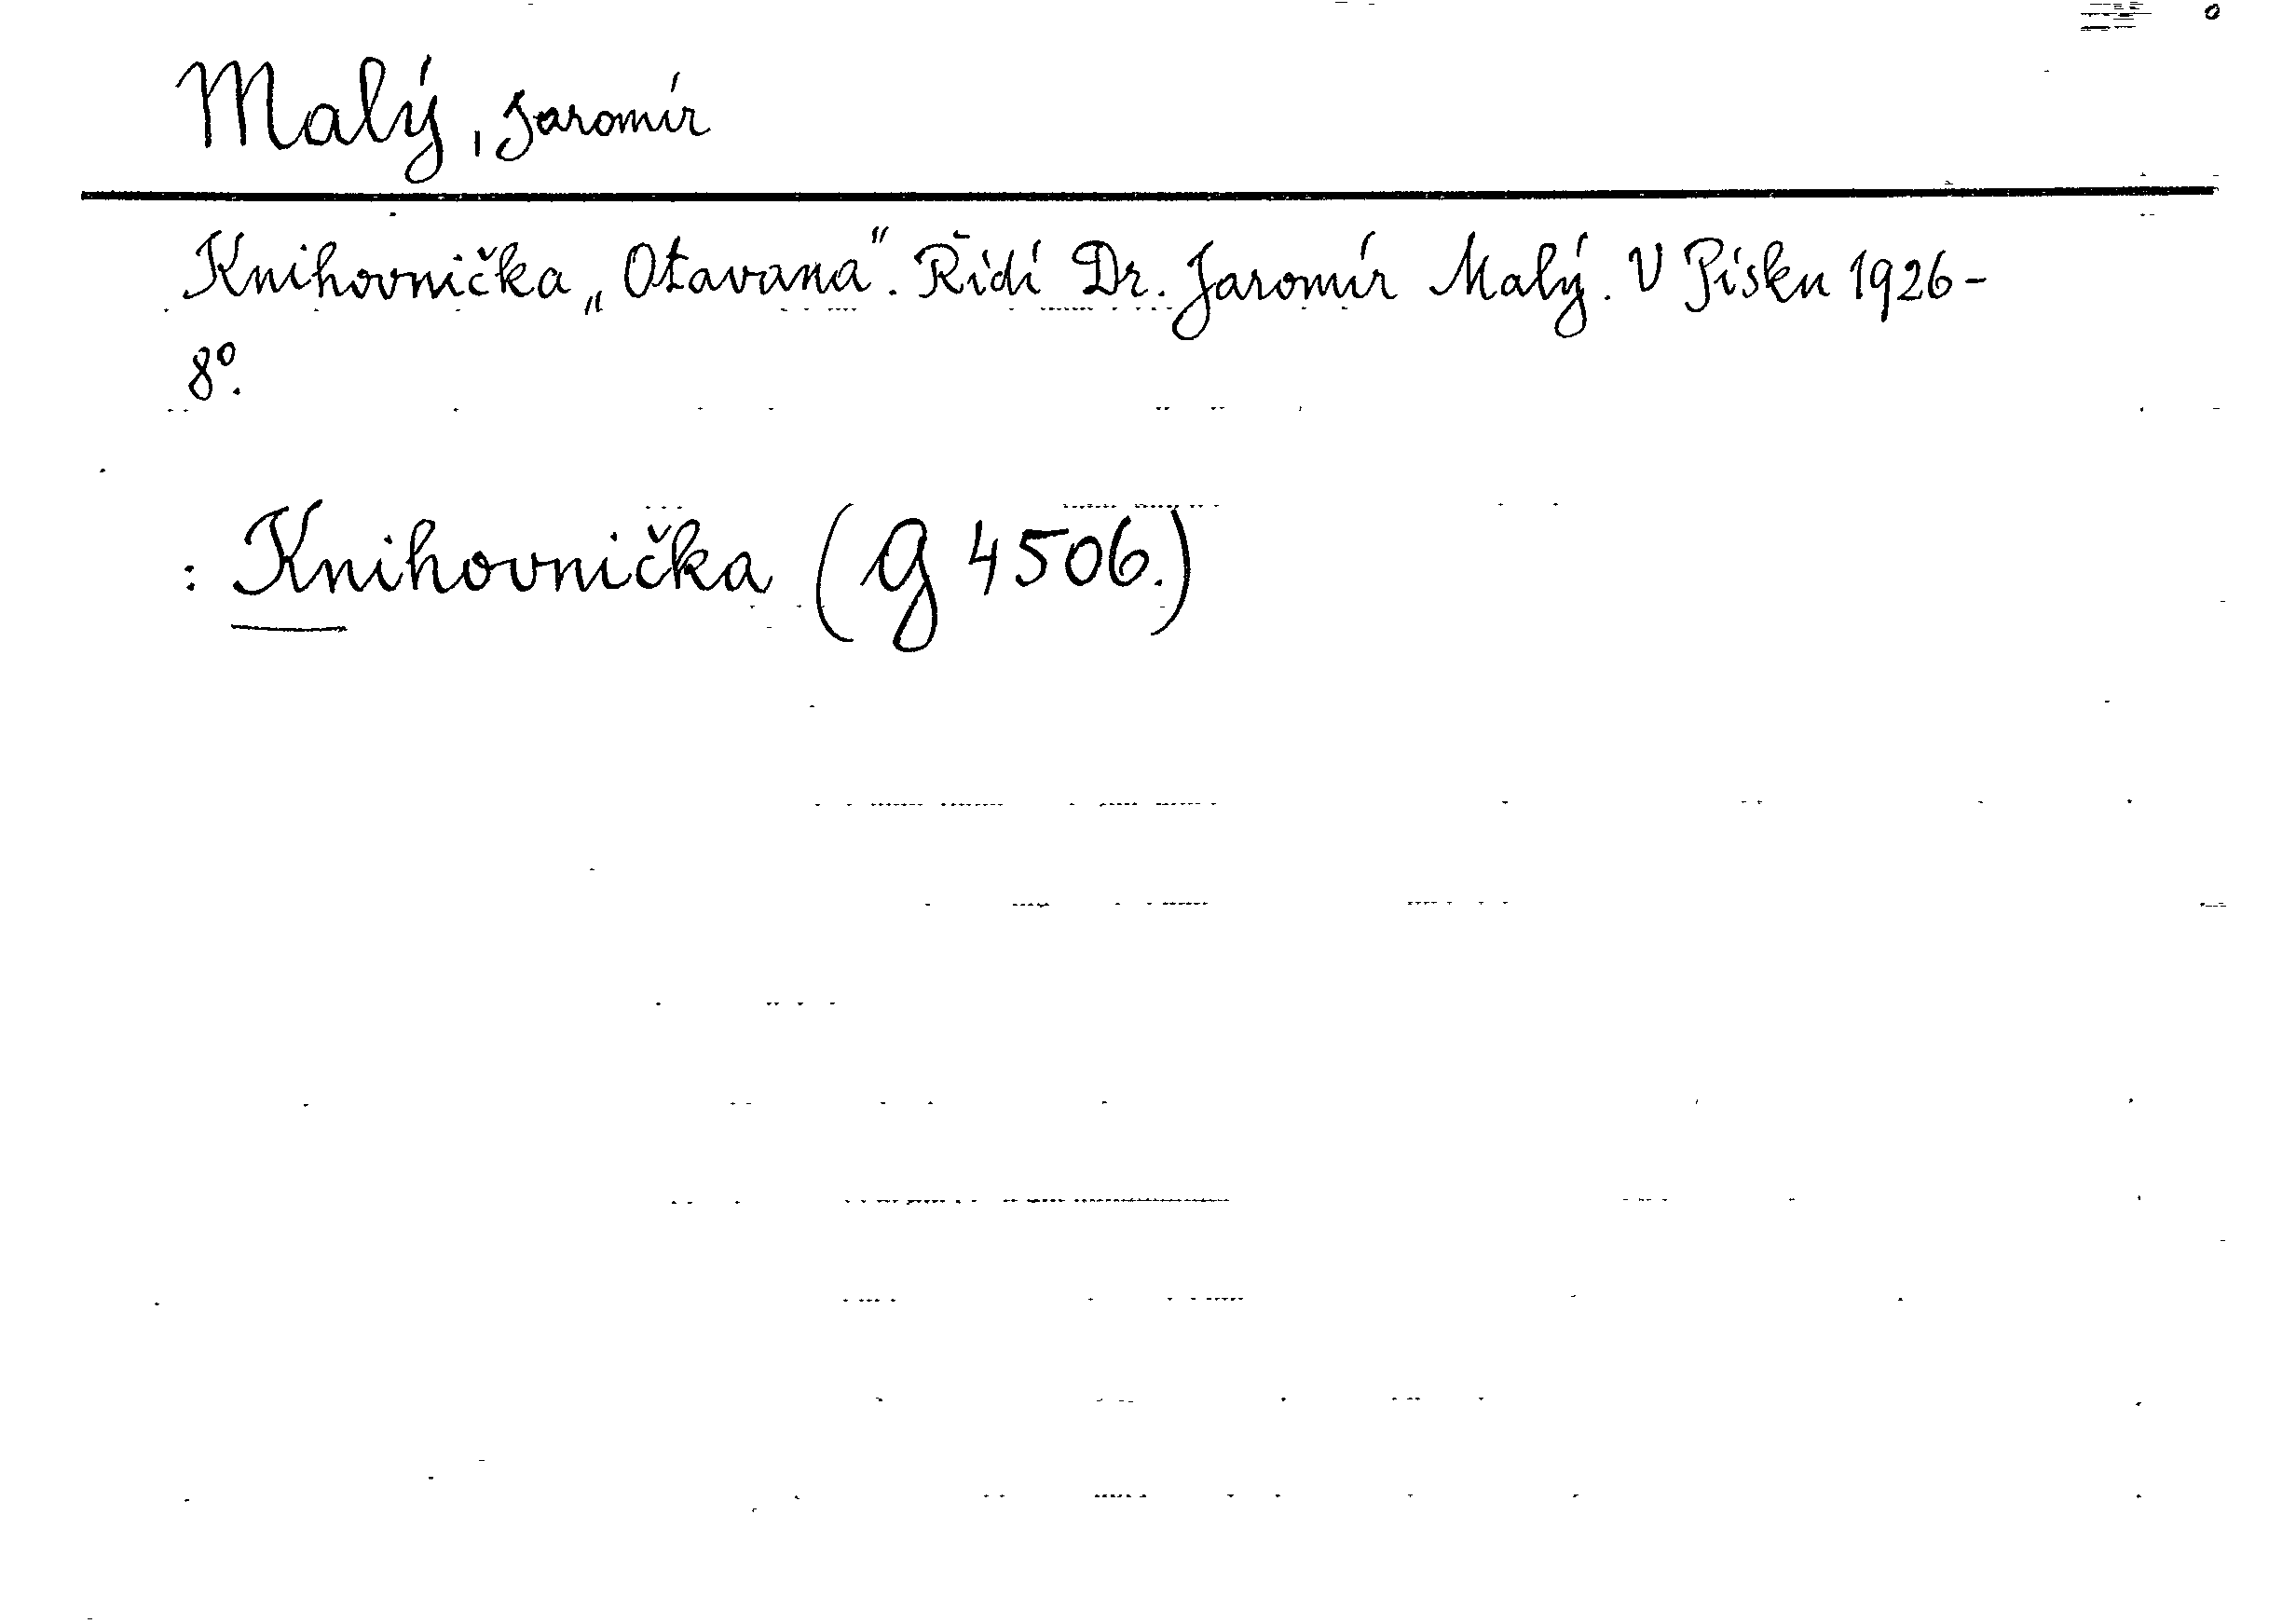 Malý, Jaromír
Knihovnička „Otavana“. Řídí Dr. Jaromír Malý. V Písku 1926-
8º.
: Knihovnička (G 4506.)